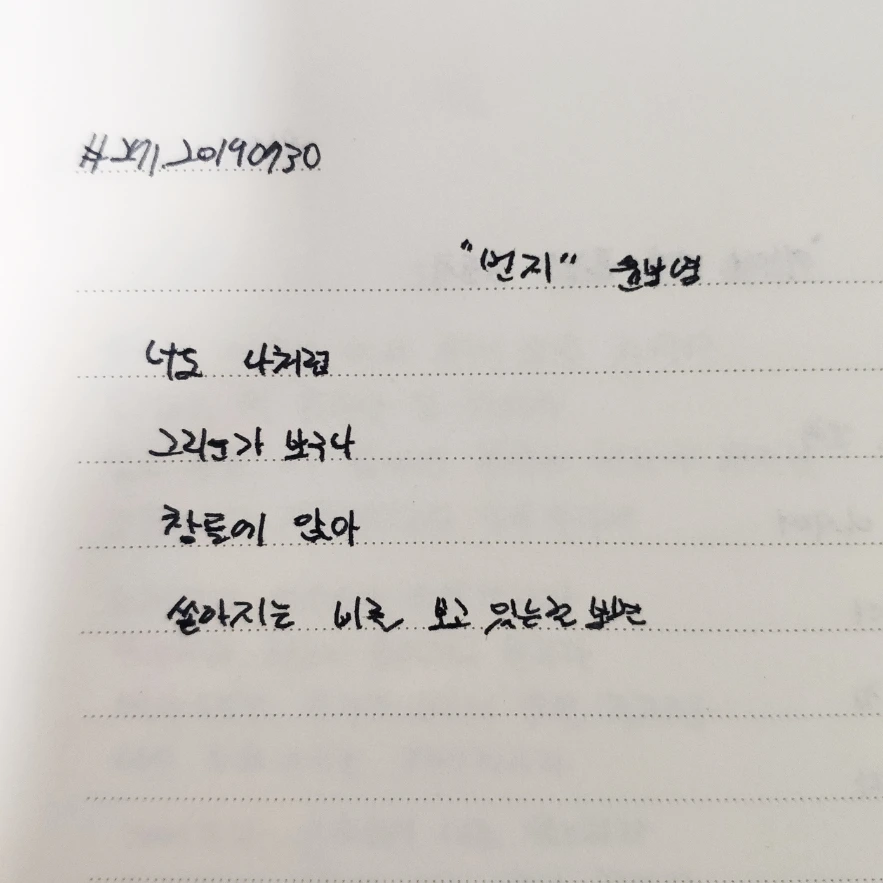 20190730
"먼지" 윤보영
너도 나처럼
그리운가 보구나
창틀에 앉아
쏟아지는 비를 보고 있는걸 보면